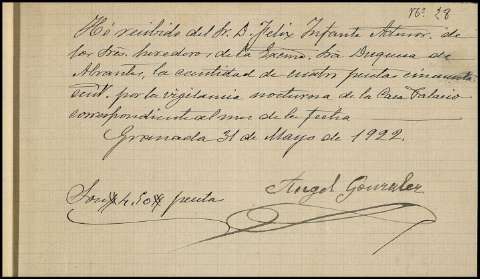 Nº 28
He recibido del Sr. D. Felix Infante de
los Sres. herederos de la Excma. Sra Duquesa de
Abrantes, la cantidad de cuatro pesetas cincuenta
cent. por la vigilancia nocturna de la Casa Palacio
correspondiente al mes de la fecha
Granada 31 de Mayo de 1922.
Son # 4,50 # pesetas
Angel Gonzalez